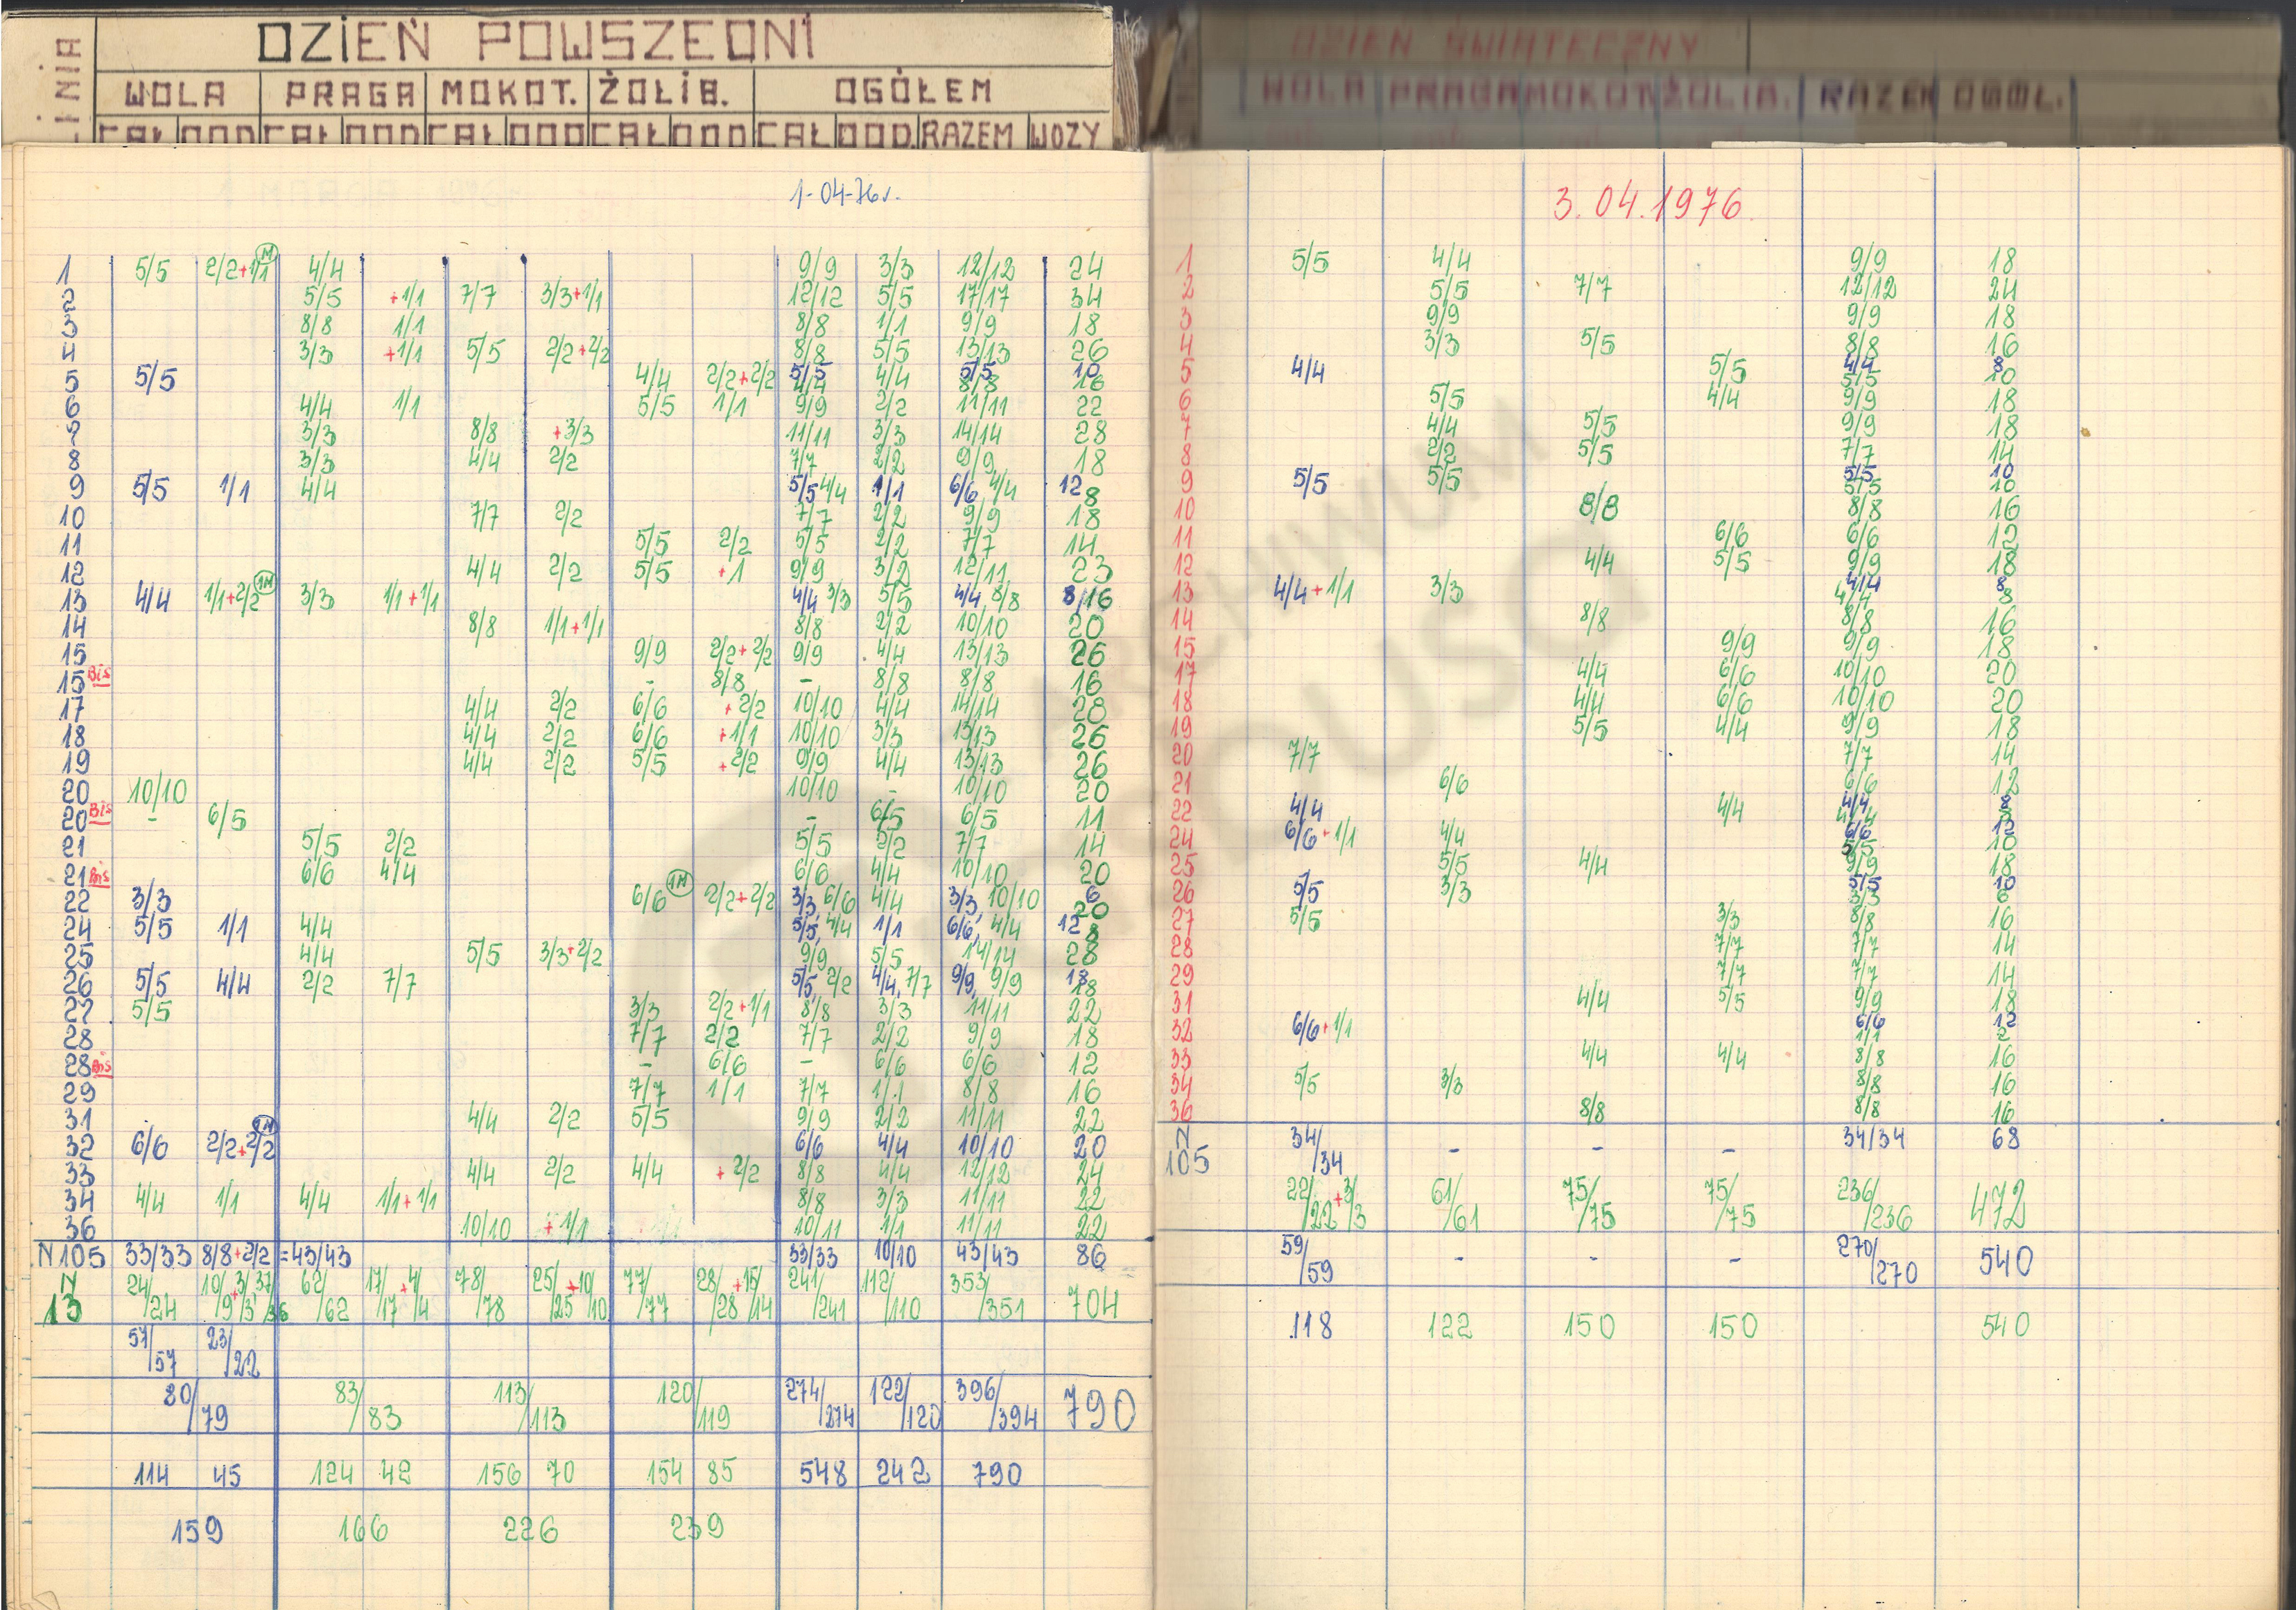 LINIA DZIEŃ POWSZEDNI
WOLA PRAGA MOKOT. ŻOLIB. OGÓŁEM
CAŁ DOD CAŁ DOD CAŁ DOD CAŁ DOD CAŁ DOD. RAZEM WOZY
1-04-76r.
1 5/5 2/2+1/1 M 4/4 9/9 3/3 12/12 24
2 5/5 +1/1 7/7 3/3+1/1 12/12 5/5 17/17 34
3 8/8 1/1 8/8 1/1 9/9 18
4 3/3 +1/1 5/5 2/2+2/2 8/8 5/5 13/13 26
5 5/5 4/4 2/2+2/2 5/5 4/4 4/4 5/5 8/8 10 16
6 4/4 1/1 5/5 1/1 9/9 2/2 11/11 22
7 3/3 8/8 +3/3 11/11 3/3 14/14 28
8 3/3 4/4 2/2 7/7 2/2 9/9 18
9 5/5 1/1 4/4 5/5 4/4 1/1 6/6 4/4 12 8
10 7/7 2/2 7/7 2/2 9/9 18
11 5/5 2/2 5/5 2/2 7/7 14
12 4/4 2/2 5/5 +1 9/9 3/2 12/11 23
13 4/4 1/1+2/2 1M 3/3 1/1+1/1 4/4 3/3 5/5 4/4 8/8 8/16
14 8/8 1/1+1/1 8/8 2/2 10/10 20
15 9/9 2/2+2/2 9/9 4/4 13/13 26
15 Bis - 8/8 - 8/8 8/8 16
17 4/4 2/2 6/6 +2/2 10/10 4/4 14/14 28
18 4/4 2/2 6/6 +1/1 10/10 3/3 13/13 26
19 4/4 2/2 5/5 +2/2 9/9 4/4 13/13 26
20 10/10 10/10 - 10/10 20
20 Bis - 6/5 - 6/5 6/5 11
21 5/5 2/2 5/5 2/2 7/7 14
21 Bis 6/6 4/4 6/6 4/4 10/10 20
22 3/3 6/6 1M 2/2+2/2 3/3 6/6 4/4 3/3, 10/10 6 20
24 5/5 1/1 4/4 5/5, 4/4 1/1 6/6, 4/4 12 8
25 4/4 5/5 3/3+2/2 9/9 5/5 14/14 28
26 5/5 4/4 2/2 7/7 5/5, 2/2 4/4, 7/7 9/9, 9/9 18 18
27 5/5 3/3 2/2+1/1 8/8 3/3 11/11 22
28 7/7 2/2 7/7 2/2 9/9 18
28 Bis - 6/6 - 6/6 6/6 12
29 7/7 1/1 7/7 1/1 8/8 16
31 4/4 2/2 5/5 9/9 2/2 11/11 22
32 6/6 2/2+2/2 1M 6/6 4/4 10/10 20
33 4/4 2/2 4/4 +2/2 8/8 4/4 12/12 24
34 4/4 1/1 4/4 1/1+1/1 8/8 3/3 11/11 22
36 10/10 +1/1 10/11 1/1 11/11 22
N105 33/33 8/8+2/2 =43/43 33/33 10/10 43/43 86
N 13 24/24 10/9+3/3 37/36 62/62 17/17+4/4 78/78 25/25+10/10 77/77 28/28+15/14 241/241 112/110 353/351 704
57/57 23/22
80/79 83/83 113/113 120/119 274/274 122/120 396/394 790
114 45 124 42 156 70 154 85 548 242 790
159 166 226 239
DZIEŃ ŚWIĄTECZNY
WOLA PRAGA MOKOT. ŻOLIB. RAZEM OGÓŁ.
3.04.1976
1 5/5 4/4 9/9 18
2 5/5 7/7 12/12 24
3 9/9 9/9 18
4 3/3 5/5 8/8 16
5 4/4 5/5 4/4 5/5 8 10
6 5/5 4/4 9/9 18
7 4/4 5/5 9/9 18
8 2/2 5/5 7/7 14
9 5/5 5/5 5/5 5/5 10 10
10 8/8 8/8 16
11 6/6 6/6 12
12 4/4 5/5 9/9 18
13 4/4+1/1 3/3 4/4 4/4 8 8
14 8/8 8/8 16
15 9/9 9/9 18
17 4/4 6/6 10/10 20
18 4/4 6/6 10/10 20
19 5/5 4/4 9/9 18
20 7/7 7/7 14
21 6/6 6/6 12
22 4/4 4/4 4/4 4/4 8 8
24 6/6+1/1 4/4 6/6 5/5 12 10
25 5/5 4/4 9/9 18
26 5/5 3/3 5/5 3/3 10 6
27 5/5 3/3 8/8 16
28 7/7 7/7 14
29 7/7 7/7 14
31 4/4 5/5 9/9 18
32 6/6+1/1 6/6 1/1 12 2
33 4/4 4/4 8/8 16
34 5/5 3/3 8/8 16
36 8/8 8/8 16
N 105 34/34 - - - 34/34 68
22/22+3/3 61/61 75/75 75/75 236/236 472
59/59 - - - 270/270 540
118 122 150 150 540
ARCHIWUM